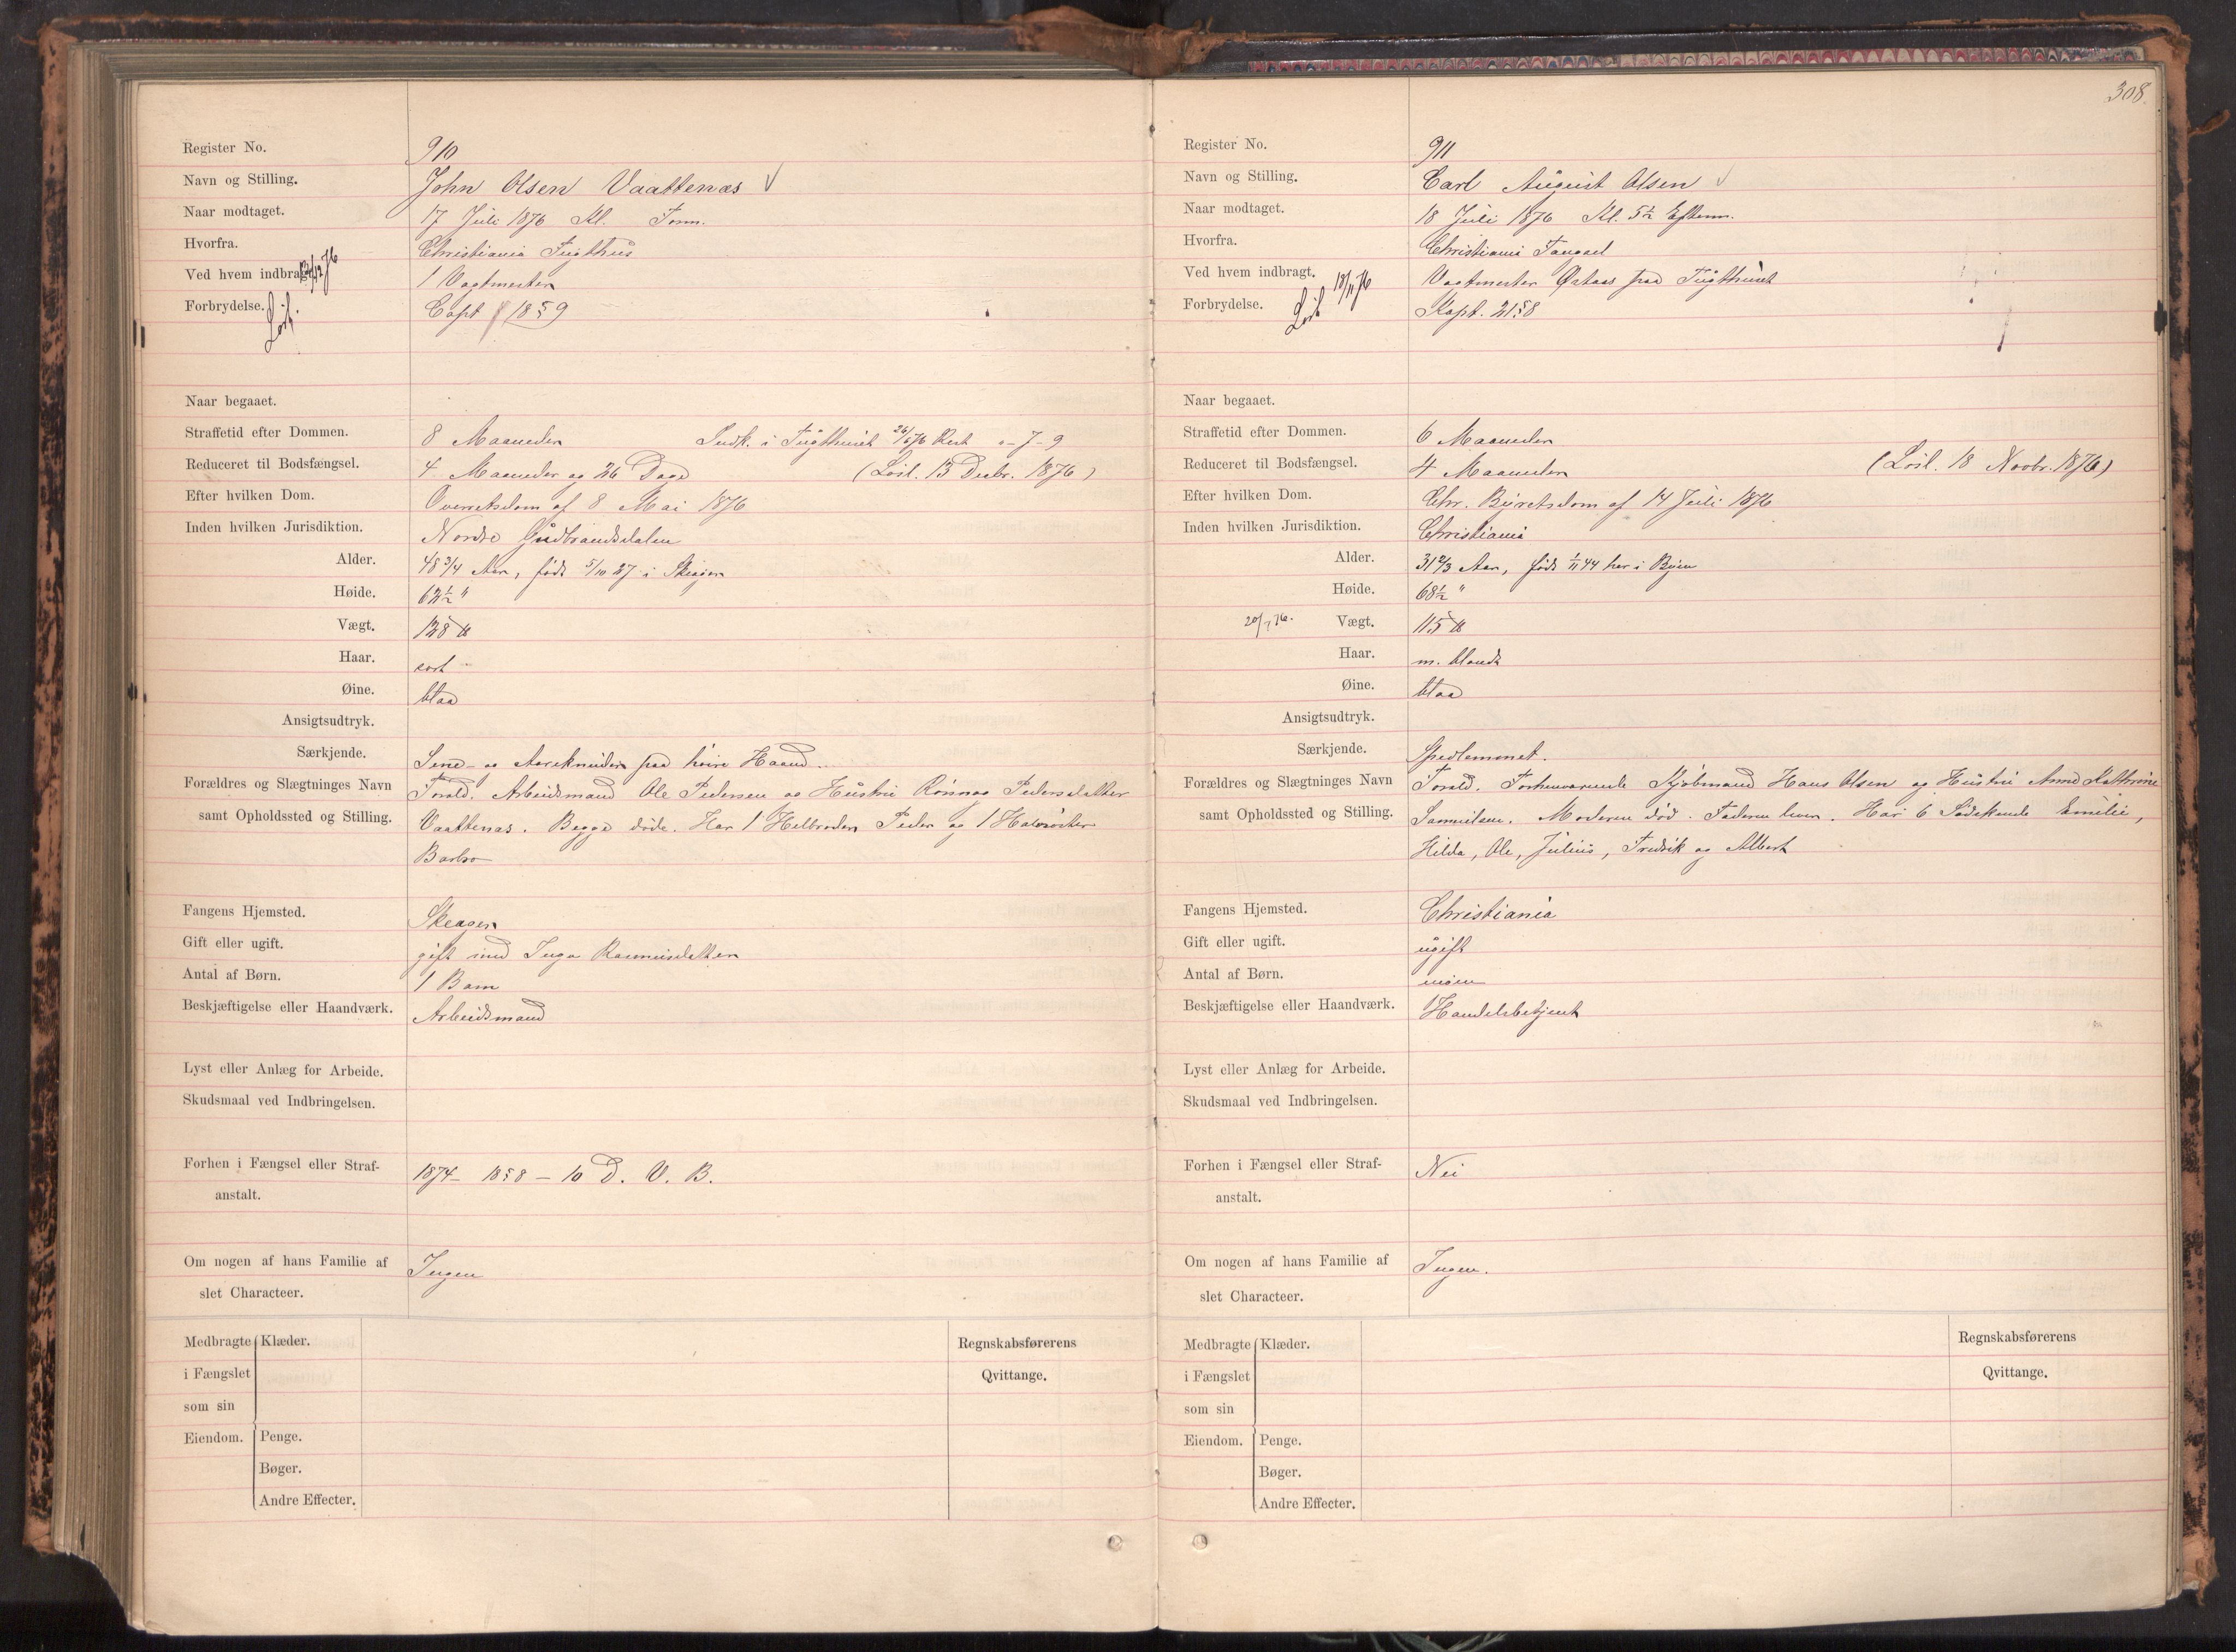 Register No. 910
Navn og Stilling. John Olsen Vaattenæs
Naar modtaget. 17 Juli 1876 Kl. Form.
Hvorfra. Christiania Tugthus
Ved hvem indbragt. 13/12 76 1 Vagtmester
Forbrydelse. Løsl. Capt 18 § 9
Naar begaaet.
Straffetid efter Dommen. 8 Maaneder Indk. i Tugthuset 26/6 76 Rest - 7 - 9
Reduceret til Bodsfængsel. 4 Maaneder og 26 Dage (Løsl. 13 Decbr. 1876)
Efter hvilken Dom. Overretsdom af 8 Mai 1876
Inden hvilken Jurisdiktion. Nordre Gudbrandsdalen
Alder. 48 3/4 Aar, født 5/10 27 i Skeager
Høide. 62 1/2 "
Vægt. 128 ℔
Haar. sort
Øine. blaa
Ansigtsudtryk.
Særkjende. Sene- og Aareknuder paa høire Haand.
Forældres og Slægtninges Navn Foræld. Arbeidsmand Ole Pedersen og Hustru Rønnog Pedersdatter
samt Opholdssted og Stilling. Vaattenæs. Begge døde. Har 1 Helbroder Peder og 1 Halvsøster
Barbro
Fangens Hjemsted. Skeager
Gift eller ugift. gift med Inga Rasmusdatter
Antal af Børn. 1 Barn
Beskjæftigelse eller Haandværk. Arbeidsmand
Lyst eller Anlæg for Arbeide.
Skudsmaal ved Indbringelsen.
Forhen i Fængsel eller Straf- 1874 - 18 § 8 - 10 D. V. B.
anstalt.
Om nogen af hans Familie af Ingen
slet Characteer.
Medbragte Klæder. Regnskabsførerens
i Fængslet Qvittange.
som sin
Eiendom. Penge.
Bøger.
Andre Effecter.
308.
Register No. 911
Navn og Stilling. Carl August Olsen
Naar modtaget. 18 Juli 1876 Kl. 5 1/2 Efterm.
Hvorfra. Christiania
Ved hvem indbragt. 18/11 76 Vagtmester paa Tugthuset
Forbrydelse. Løsl Kapt. 21 § 8
Naar begaaet.
Straffetid efter Dommen. 6 Maaneder
Reduceret til Bodsfængsel. 4 Maaneder (Løsl. 18 Novbr. 1876)
Efter hvilken Dom. Chr. Byretsdom af 14 Juli 1876
Inden hvilken Jurisdiktion. Christiania
Alder. 31 2/3 Aar, født 1/11 44 her i Byen
Høide. 68 1/2 "
20/7 76. Vægt. 115 ℔
Haar. m. blondt
Øine. blaa
Ansigtsudtryk.
Særkjende. Spedlemmet.
Forældres og Slægtninges Navn Foræld. Forhenværende Kjøbmand Hans Olsen og Hustru Anne Kathrine
samt Opholdssted og Stilling. Samuelsen. Moderen død. Faderen lever. Har 6 Sødskende Emilie,
Hilda, Ole, Julius, Fredrik og Albert
Fangens Hjemsted. Christiania
Gift eller ugift. ugift
Antal af Børn. ingen
Beskjæftigelse eller Haandværk. Handelsbetjent
Lyst eller Anlæg for Arbeide.
Skudsmaal ved Indbringelsen.
Forhen i Fængsel eller Straf- Nei
anstalt.
Om nogen af hans Familie af Ingen.
slet Characteer.
Medbragte Klæder. Regnskabsførerens
i Fængslet Qvittange.
som sin
Eiendom. Penge.
Bøger.
Andre Effecter.